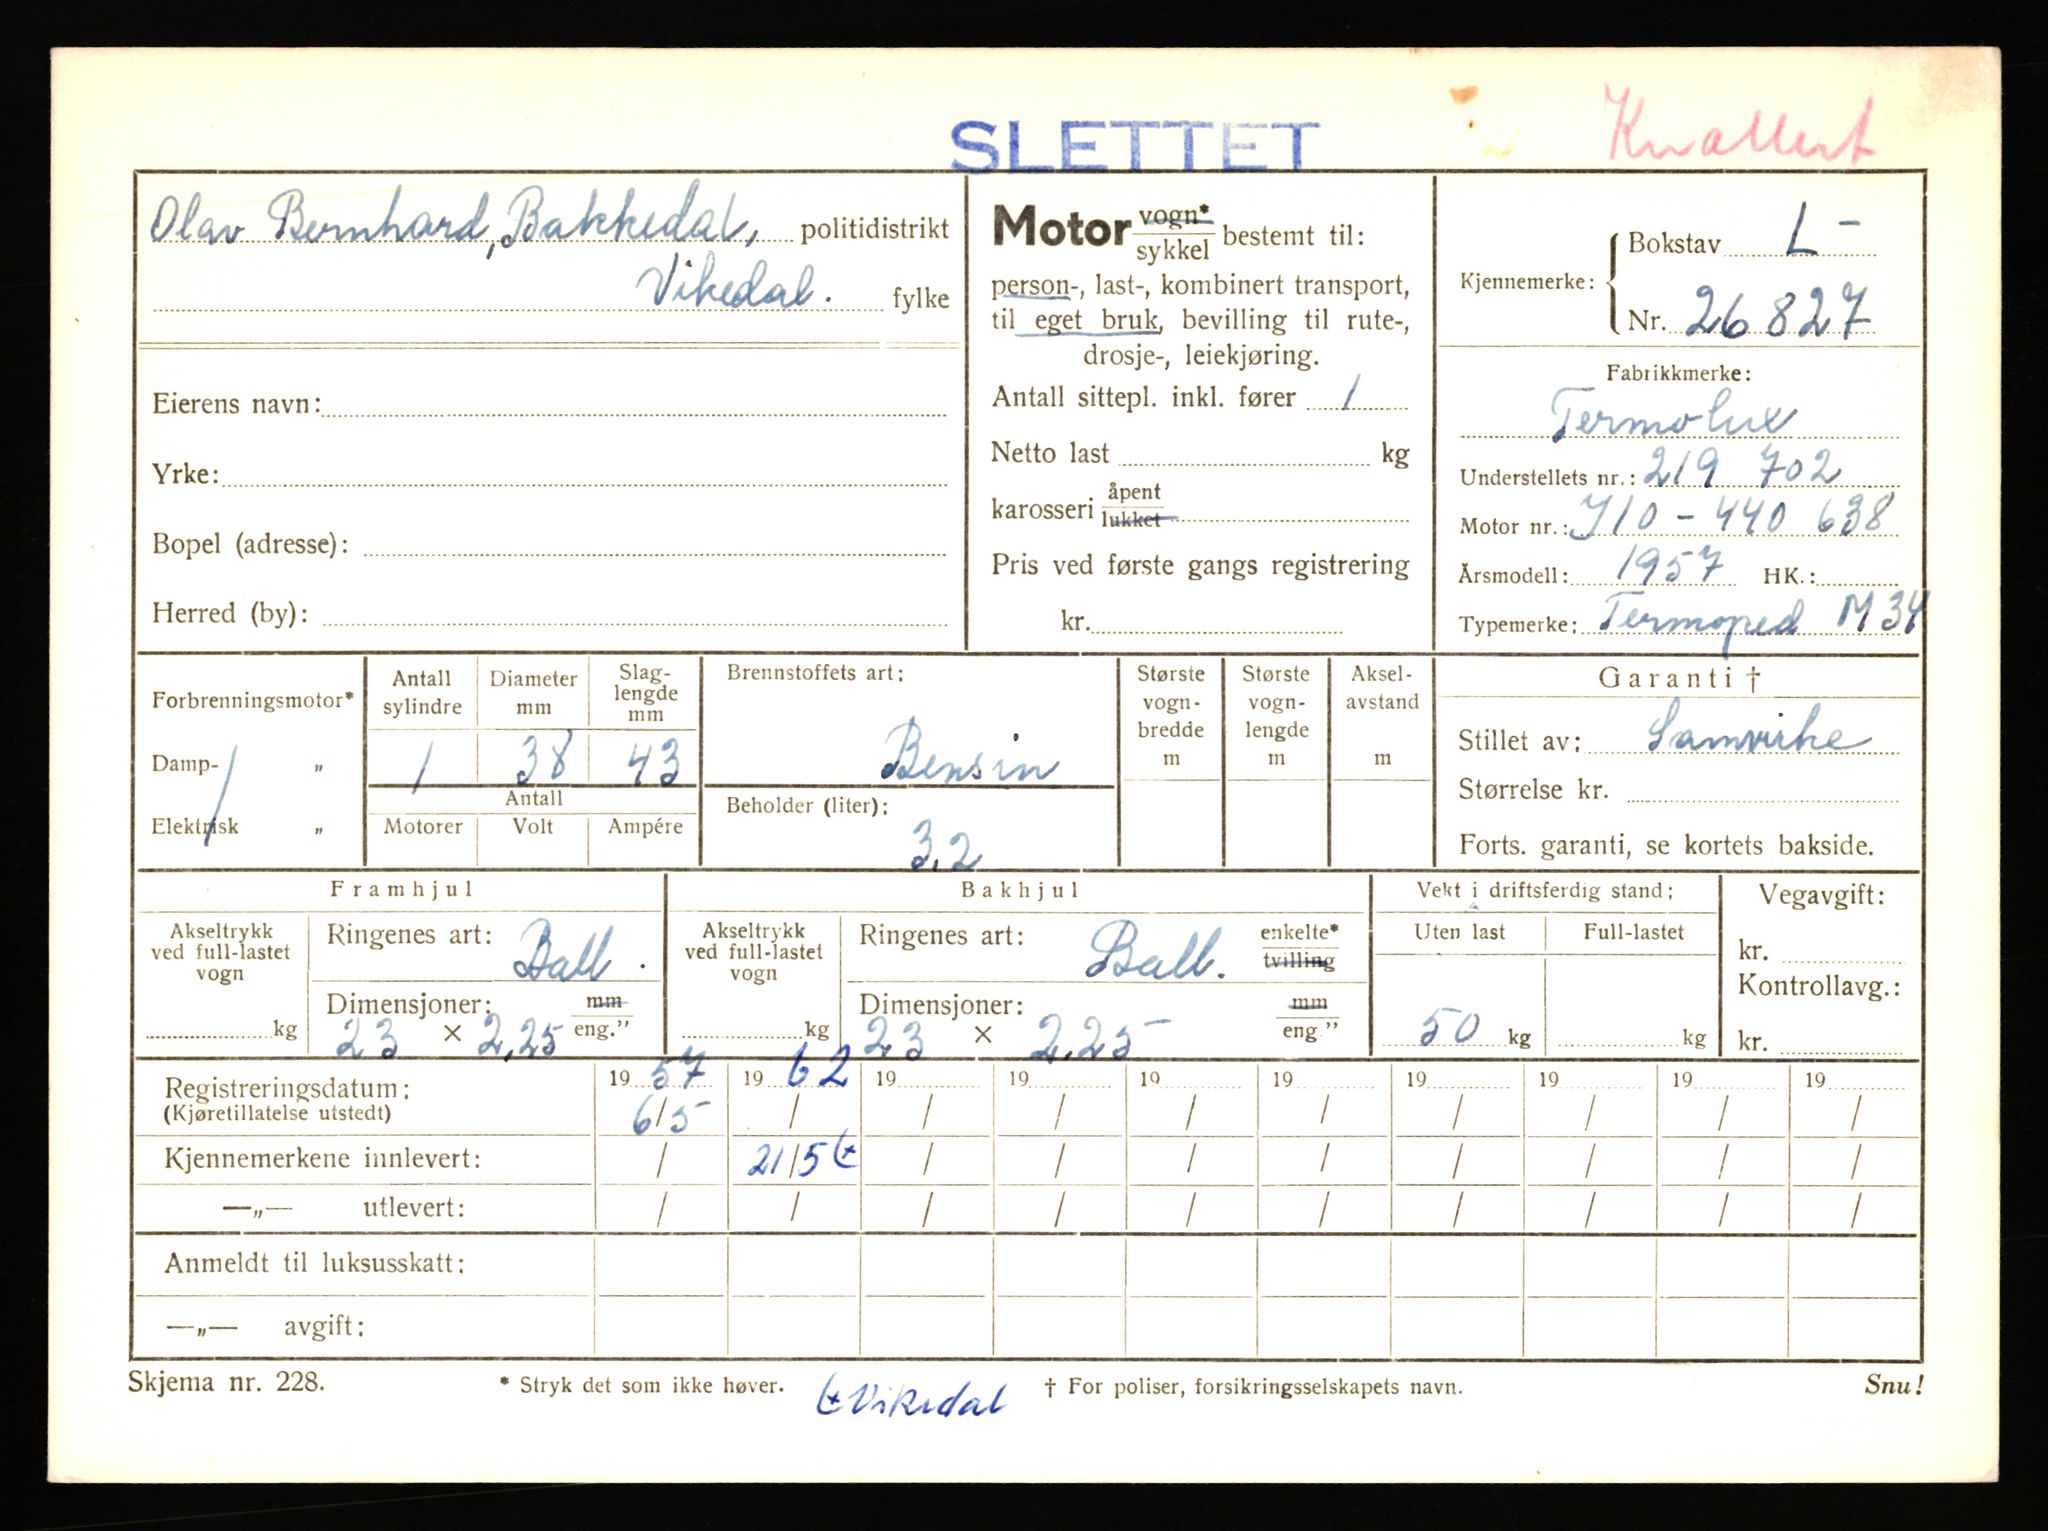 SLETTET
Knallert
Olav Bernhard, Bakkedal, politidistrikt
Vikedal. fylke
Eierens navn:
Yrke:
Bopel (adresse):
Herred (by):
Motor vogn* / sykkel bestemt til:
person-, last-, kombinert transport,
til eget bruk, bevilling til rute-,
drosje-, leiekjøring.
Antall sittepl. inkl. fører 1
Netto last kg
karosseri åpent / lukket
Pris ved første gangs registrering
kr.
Kjennemerke: Bokstav L-
Nr. 26827
Fabrikkmerke:
Termolux
Understellets nr.: 219 702
Motor nr.: J10-440 638
Årsmodell: 1957 HK.:
Typemerke: Termoped M 34
Forbrenningsmotor*
Damp- „
Elektrisk „
Antall sylindre
1
Diameter mm
38
Slag-
lengde
mm
43
Antall
Motorer Volt Ampére
Brennstoffets art:
Bensin
Beholder (liter):
3,2
Største
vogn-
bredde
m
Største
vogn-
lengde
m
Aksel-
avstand
m
Garanti †
Stillet av: Samvirke
Størrelse kr.
Forts. garanti, se kortets bakside.
Framhjul
Akseltrykk
ved full-lastet
vogn
kg
Ringenes art: Ball.
Dimensjoner: mm
23 × 2,25 eng."
Bakhjul
Akseltrykk
ved full-lastet
vogn
kg
Ringenes art: Ball. enkelte* / tvilling
Dimensjoner: mm
23 × 2,25 eng."
Vekt i driftsferdig stand:
Uten last Full-lastet
50 kg kg
Vegavgift:
kr.
Kontrollavg.:
kr.
Registreringsdatum: 19 57 19 62 19 19 19 19 19 19 19 19
(Kjøretillatelse utstedt) 6/5 / / / / / / / / /
Kjennemerkene innlevert: / 21/5 (x / / / / / / / /
—„— utlevert: / / / / / / / / / /
Anmeldt til luksusskatt:
—„— avgift:
Skjema nr. 228. * Stryk det som ikke høver. (x Vikedal † For poliser, forsikringsselskapets navn. Snu!